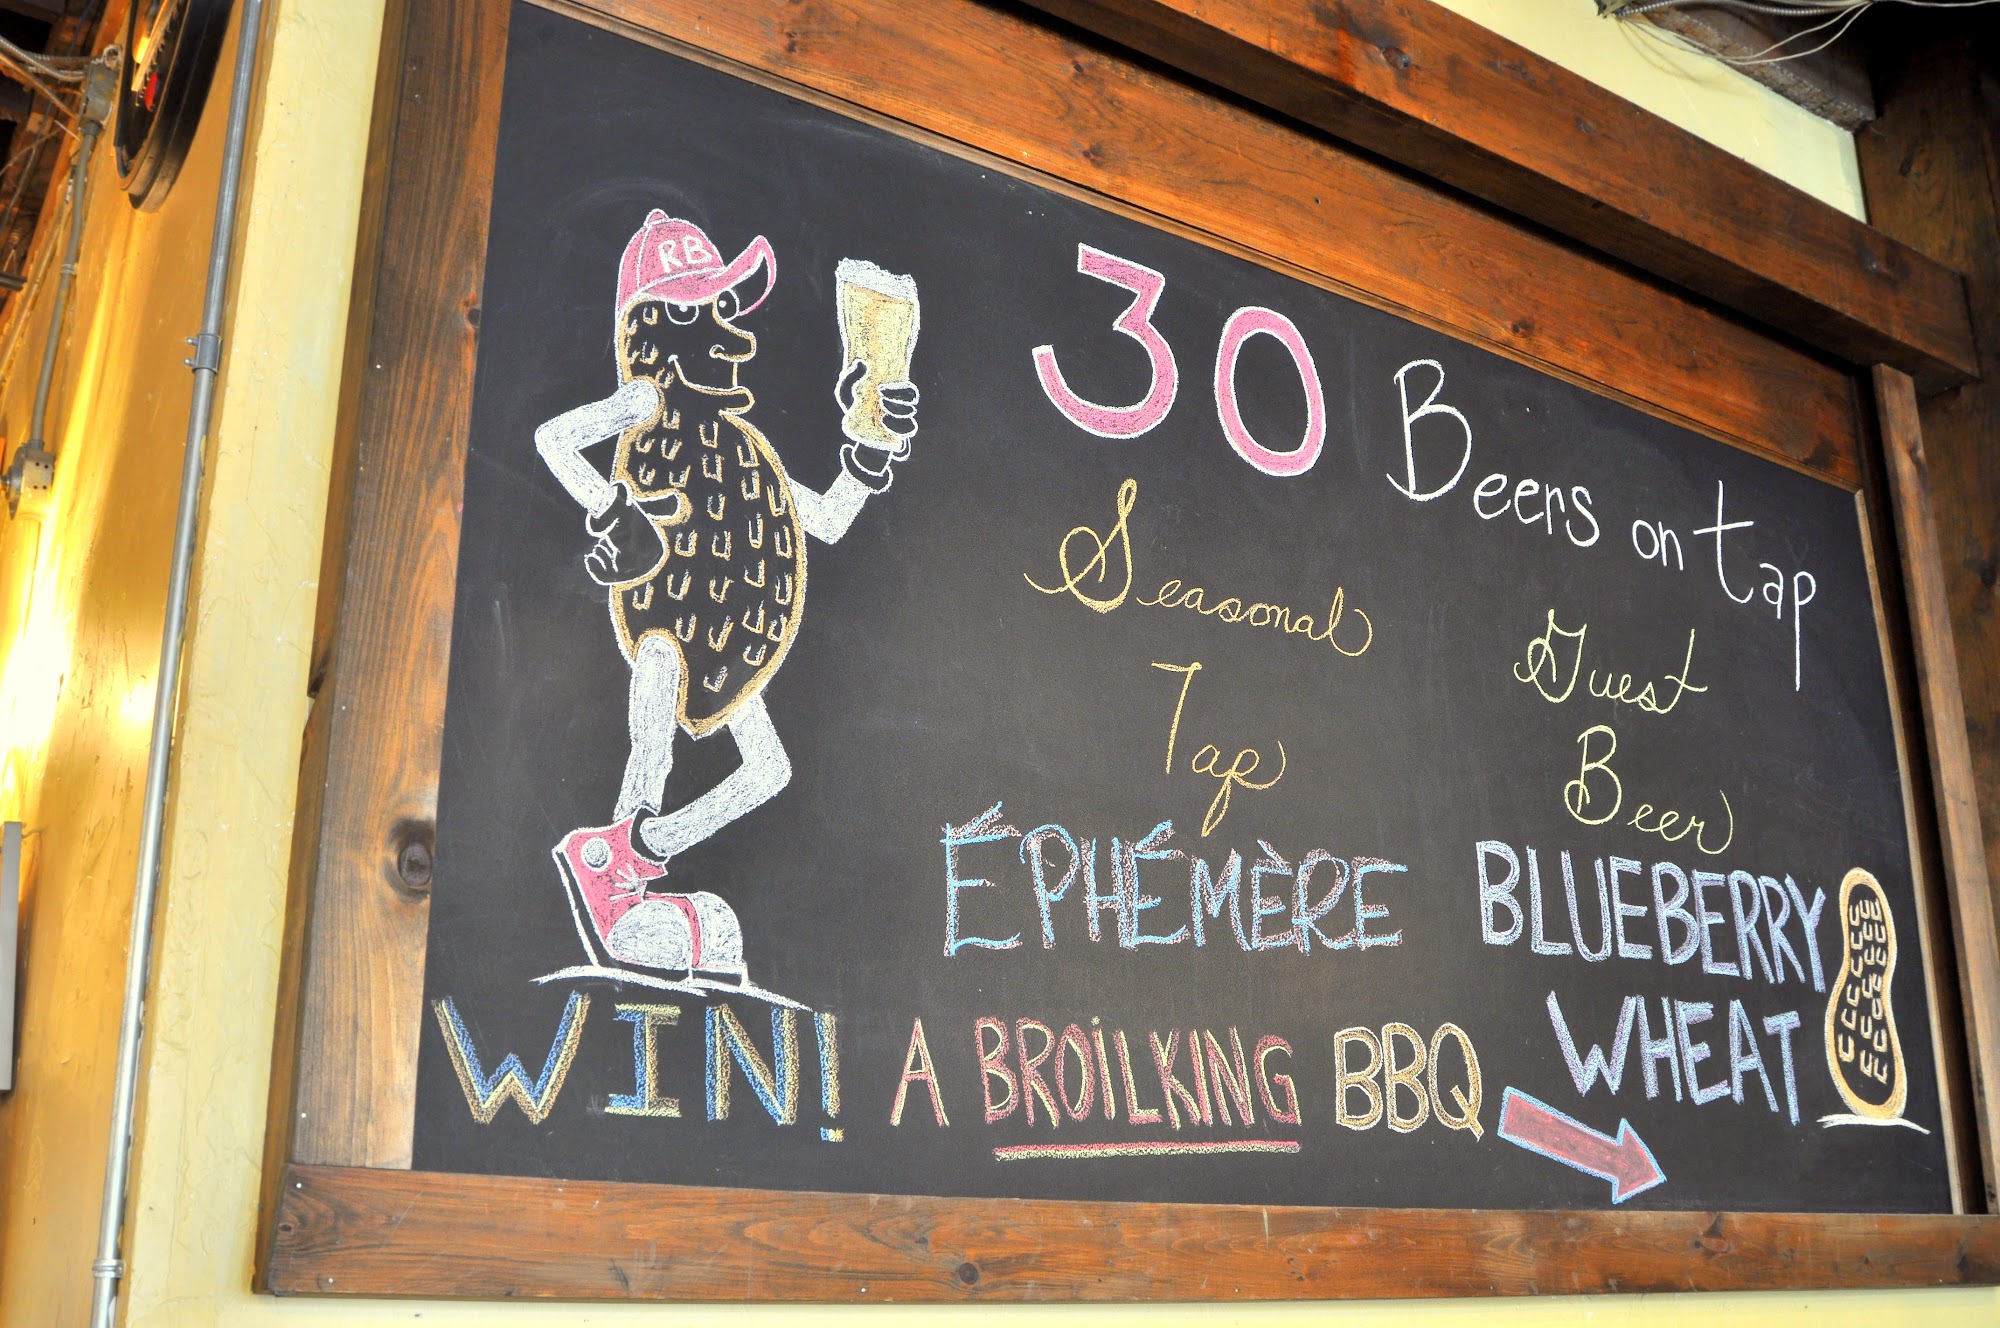 RB
30 Beers on tap
Seasonal
Tap
ÉPHÉMÈRE
Guest
Beer
BLUEBERRY
WHEAT
WIN! A BROiLKING BBQ